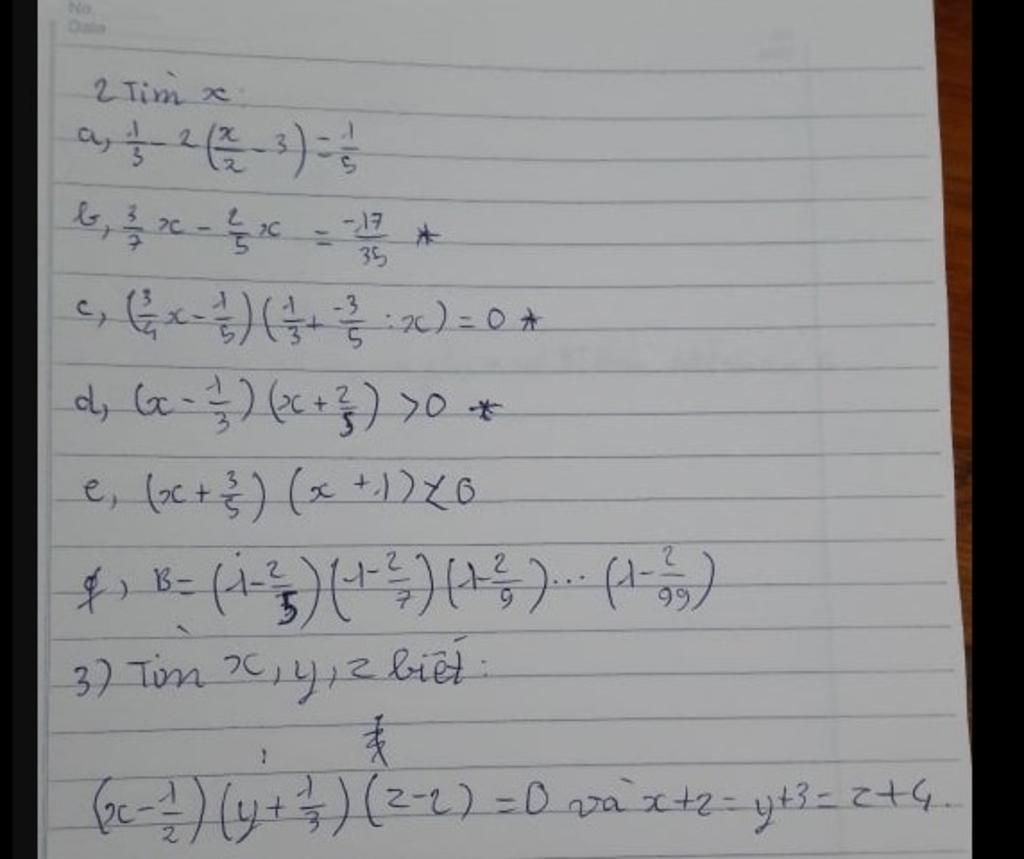 No.
Date
2 Tìm x:
a, 1/3 - 2(x/2 - 3) = 1/5
b, 3/7 x - 2/5 x = -17/35 *
c, (3/4 x - 1/5)(1/3 + -3/5 : x) = 0 *
d, (x - 1/3)(x + 2/5) > 0 *
e, (x + 3/5)(x + 1) < 0
f, B = (1 - 2/5)(1 - 2/7)(1 - 2/9)... (1 - 2/99)
3) Tìm x, y, z biết:
*
(x - 1/2)(y + 1/3)(z - 2) = 0 và x+2 = y+3 = z+4.